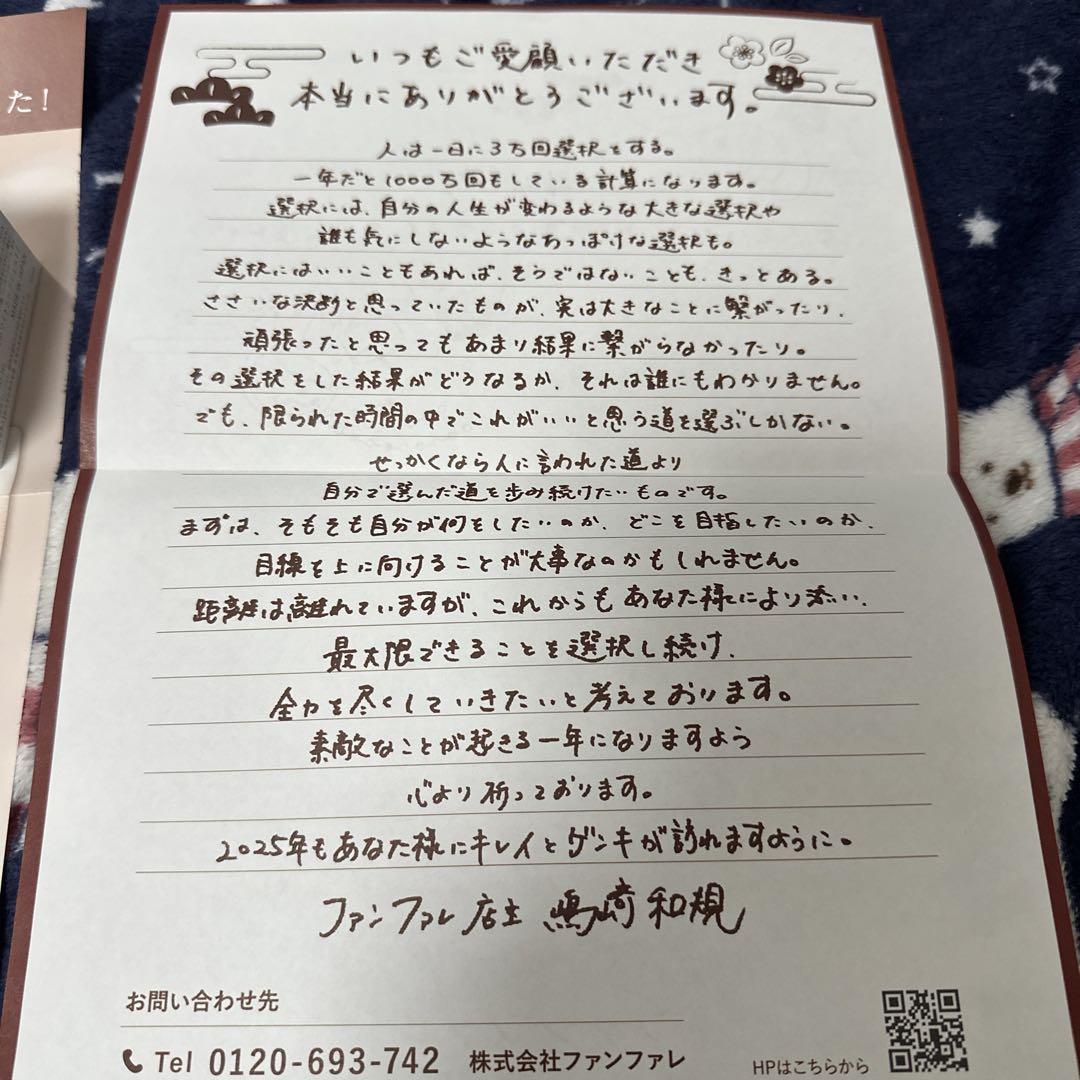 た!
いつもご愛顧いただき
本当にありがとうございます。
人は一日に3万回選択をする。
一年だと1000万回もしている計算になります。
選択には、自分の人生が変わるような大きな選択や
誰も気にしないようなちっぽけな選択も。
選択にはいいこともあれば、そうではないことも、きっとある。
ささいな決断と思っていたものが、実は大きなことに繋がったり、
頑張ったと思ってもあまり結果に繋がらなかったり。
その選択をした結果がどうなるか、それは誰にもわかりません。
でも、限られた時間の中でこれがいいと思う道を選ぶしかない。
せっかくなら人に言われた道より
自分で選んだ道を歩み続けたいものです。
まずは、そもそも自分が何をしたいのか、どこを目指したいのか、
目線を上に向けることが大事なのかもしれません。
距離は離れていますが、これからもあなた様により添い、
最大限できることを選択し続け、
全力を尽くしていきたいと考えております。
素敵なことが起きる一年になりますよう
心より祈っております。
2025年もあなた様にキレイとゲンキが訪れますように。
ファンファレ店主 嶋崎和規
お問い合わせ先
Tel 0120-693-742 株式会社ファンファレ
HPはこちらから